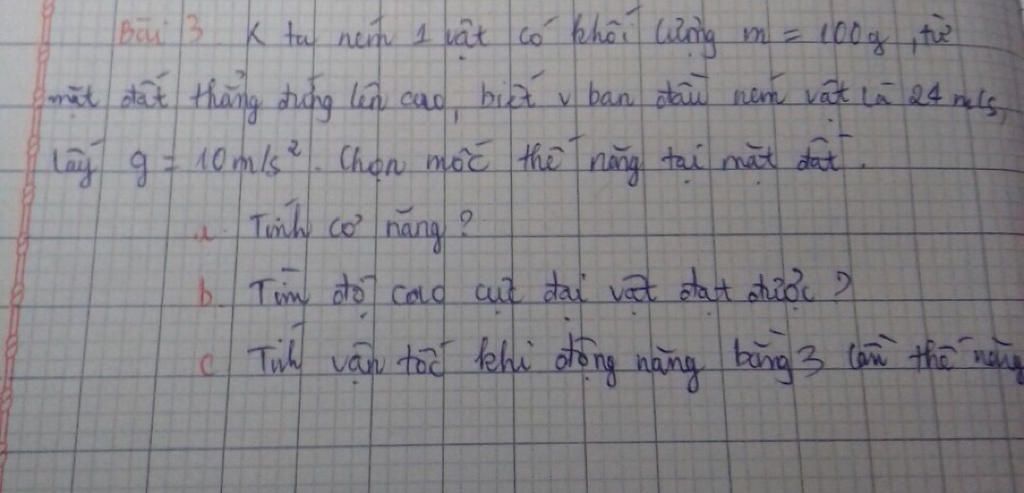 Bài 3 K ta ném 1 vật có khối lượng m = 100g, từ
mặt đất thẳng đứng lên cao, biết v ban đầu ném vật là 24 m/s,
lấy g = 10m/s². Chọn mốc thế năng tại mặt đất.
a. Tính cơ năng?
b. Tìm độ cao cực đại vật đạt được?
c Tính vận tốc khi động năng bằng 3 lần thế năng